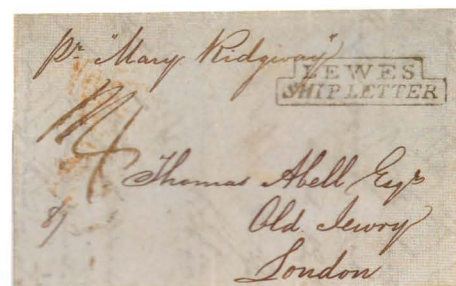 pr "Mary Ridgway"
LEWES
SHIP LETTER
Thomas Abell Esqr
Old Jewry
London